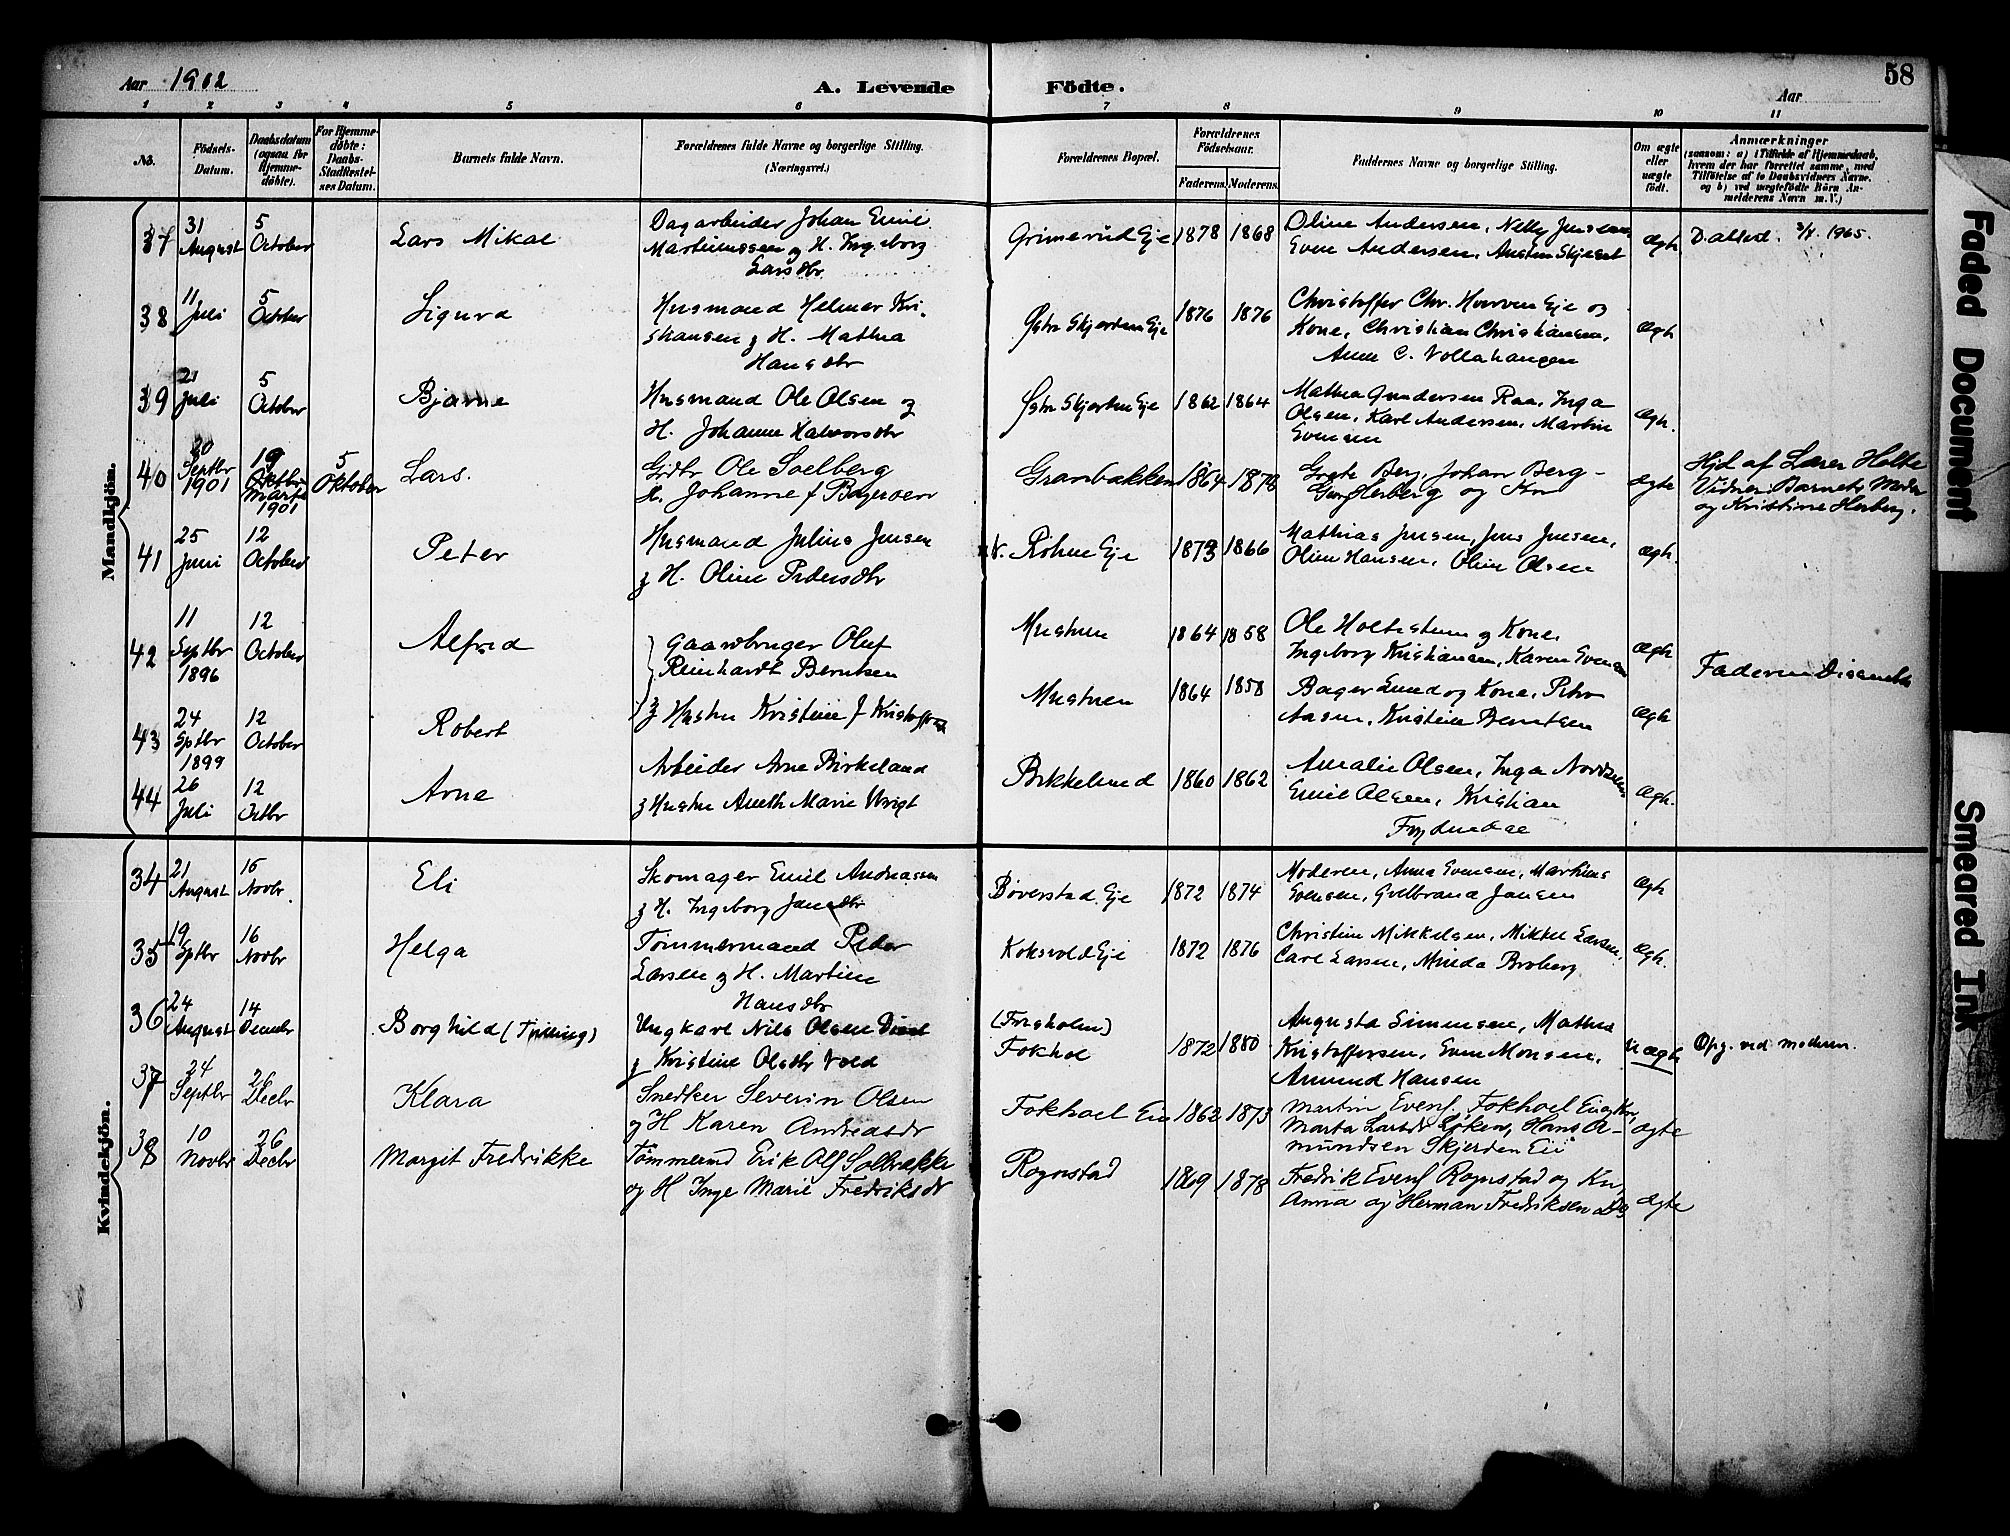 Aar 1902
A. Levende
Födte.
Aar
58
1 2 3 4 5 6 7 8 9 10 11
No.
Födsels-
Datum.
Daabsdatum
(ogsaa for
Hjemme-
döbte).
For Hjemme-
döbte:
Daabs-
Stadfæstel-
ses Datum.
Barnets fulde Navn.
Forældrenes fulde Navne og borgerlige Stilling.
(Næringsvei.)
Forældrenes Bopæl.
Forældrenes
Födselsaar.
Faderens. Moderens.
Faddernes Navne og borgerlige Stilling.
Om ægte
eller
uægte
født.
Anmærkninger
(saasom: a) i Tilfælde af Hjemmedaab,
hvem der har forrettet samme, med
Tilföielse af to Daabsvidners Navne,
og b) ved uægtefödte Börn An-
melderens Navn m. V.)
Mandkjön.
37
31
August
5
October
Lars Mikal
Dagarbeider Johan Emil
Martinussen og H. Ingeborg
Larsdtr
Grimerud Eje
1878 1868
Oline Andersen, Nelly Jensen,
Even Andersen,
ægte
1965.
38
11
Juli
5
October
Sigurd
Husmand Helmer Kri-
stiansen og H. Mathea
Hansdtr
Østre Skjerden Eje
1876 1876
Christoffer Chr. Horven Eje og
Kone, Christian Christiansen,
Anne C. Vollahaugen
ægte
39
21
Juli
5
October
Bjarne
Husmand Ole Olsen og
H. Johanne Halvorsdtr
Østre Skjerden Eje
1862 1864
Mathea Gundersen Raa, Inga
Olsen, Karl Andersen, Martin
Evensen
ægte.
40
20
Septbr
1901
19
Oktbr
Marts
1901
5
Oktober
Lars.
Gidbr Ole Soelberg
H. Johanne f
Granbakken
1864 1878
Grete Berg, Johan Berg -
ægte
Hjd af Lærer Holte
Vidner: Barnets Moder
og Kristine Herberg.
41
25
Juni
12
October
Peter
Husmand Julius Jensen
og H. Oline Pedersdtr
Rohne Eje
1873 1866
Mathias Jensen, Jens Jensen,
Oline Hansen, Oline Olsen
ægte.
42
11
Septbr
1896
12
October
Alfred
Gaardbruger Oluf
Reinhardt Berntsen
Mustuen
1864 1858
Ole Holtestuen og Kone,
Ingeborg Kristiansen, Karen Evensen
ægte
Faderen Dissenter
43
24
Sptbr
1899
12
October
Robert
og Hustru Kristine f Kristoffersen
Mustuen
1864 1858
Bager Lund og Kone, Peter
Aasen, Kristine Berntsen
ægte
44
26
Juli
12
Octbr
Arne
Arbeider Arne Birkeland
og Hustru Aneth Marie Wrigt
Bekkelund
1860 1862
Amalie Olsen, Inga
Emil Olsen, Kristian
ægte.
Kvindekjön.
34
21
August
16
Novbr.
Eli
Skomager Emil Andreassen
og H. Ingeborg Jansdtr
Böverstad Eje
1872 1874
Moderen, Anna Evensen, Martinus
Evensen, Gulbrand Jansen
ægte
35
19
Sptbr
16
Novbr
Helga
Tømmermand Peder
Larsen og H. Martine
Hansdtr
Koksvold Eje
1872 1876
Christine Mikkelsen, Mikkel Larsen,
Carl Larsen, Minda Broberg
ægte.
36
24
August
14
Decembr
Borghild (Tvilling)
Ungkarl Nils Olsen
og Kristine Olsdtr Vold
(Frisholm)
Fokhol
1872 1880
Augusta Simensen, Mathea
Kristoffersen, Even Monsen,
Amund Hansen
uægte
Opg. ved moderen.
37
24
Septbr
26
Decbr
Klara
Snedker Severin Olsen
og H Karen Andreasdtr
Fokhoel Eie
1862 1873
Martin Evens. Fokhoel Ei og Kn,
Marta Larsdtr Löken, Hans A-
mundsen Skjerden Eii
ægte
38
10
Novbr
26
Decbr
Margit Fredrikke
Tömmermd Erik Alf Solbrække
og H Inge Marie Fredriksdtr
Rognstad
1869 1878
Fredrik Evens. Rognstad og Kn,
Anna og Herman Fredriksen
ægte
Faded Document
Smeared Ink